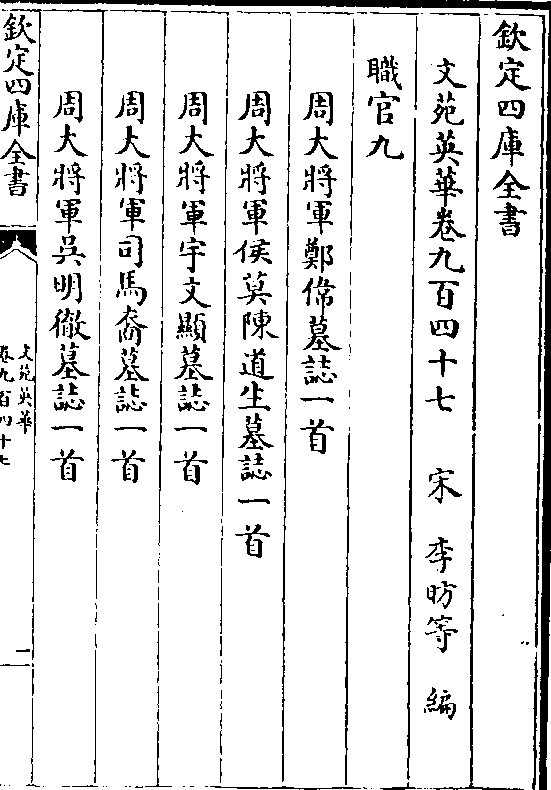 欽定四庫全書
文苑英華卷九百四十七 宋 李昉等 編
職官九
周大將軍鄭偉墓誌一首
周大將軍侯莫陳道生墓誌一首
周大將軍宇文顯墓誌一首
周大將軍司馬裔墓誌一首
周大將軍吳明徹墓誌一首
欽定四庫全書
文苑英華
卷九百四十七
一